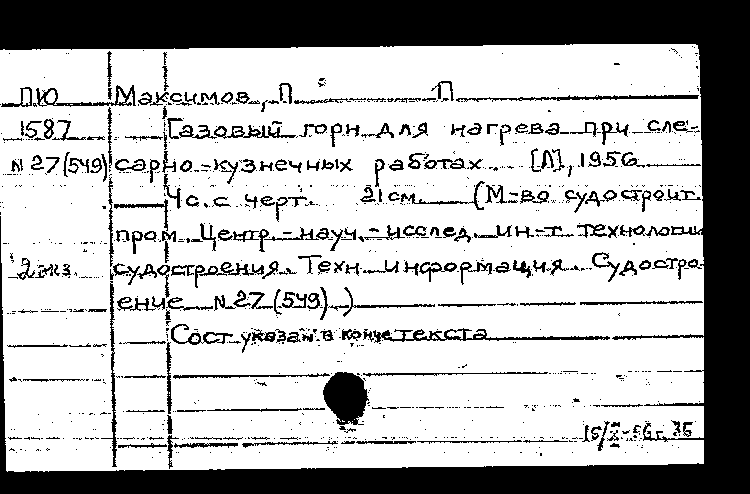 ПЮ Максимов, П П
1587 Газовый горн для нагрева при сле-
N 27 (549) сарно-кузнечных работах. [Л], 1956
4с. с черт. 21 см. (М-во судостроит.
пром. Центр.-науч.-исслед. ин-т технологии
2 экз. судостроения. Техн. информация. Судостро-
ение N 27 (549).)
Сост указан в конце текста
15/X-56г.